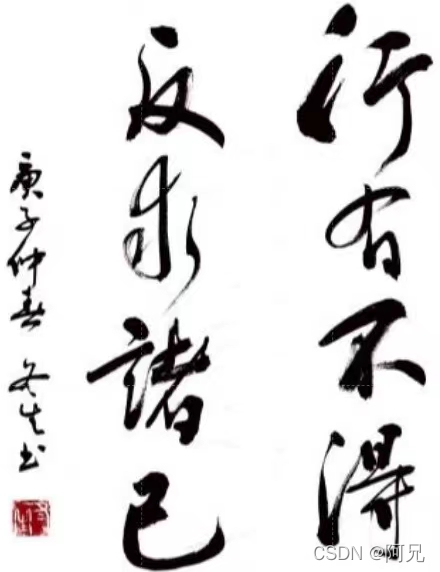 行有不得
反求諸己
庚子仲春 冬生书
CSDN @阿兄